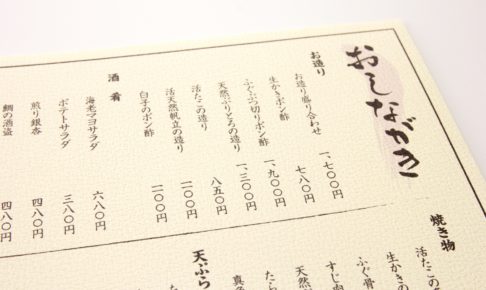 おしながき
お造り
お造り盛り合わせ 一、七〇〇円
生かきポン酢 七八〇円
ふぐぶつ切りポン酢 一、九〇〇円
天然ぶりとろの造り 一、三〇〇円
活たこの造り 八五〇円
活天然帆立の造り 一、二〇〇円
白子のポン酢 一、二〇〇円
酒肴
海老マヨサラダ 六八〇円
ポテトサラダ 三八〇円
煎り銀杏 四八〇円
鯛の酒盗 四八〇円
焼き物
活たこの
生かきの
ふぐ骨
すじ肉
天然
たら
真
天ぷら